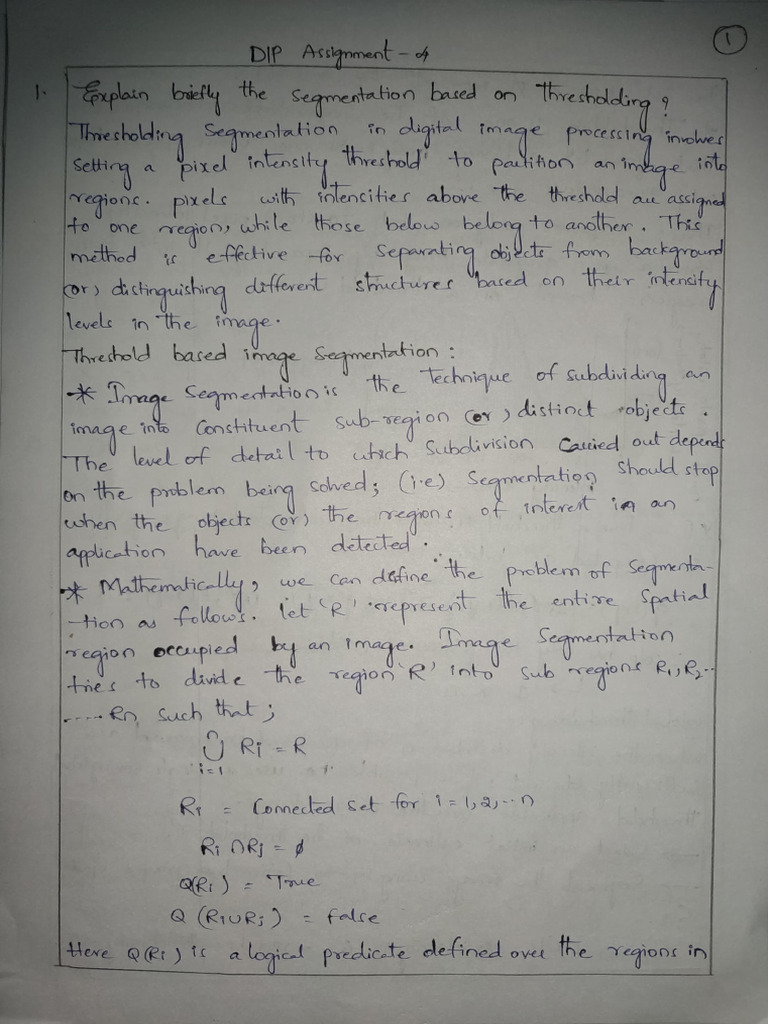 1
DIP Assignment - 4
1. Explain briefly the segmentation based on Thresholding?
Thresholding Segmentation in digital image processing involves
setting a pixel intensity threshold to partition an image into
regions. pixels with intensities above the threshold are assigned
to one region, while those below belong to another. This
method is effective for separating objects from background
(or) distinguishing different structures based on their intensity
levels in the image.
Threshold based image segmentation :
* Image segmentation is the technique of subdividing an
image into constituent sub-region (or) distinct objects.
The level of detail to which subdivision carried out depends
on the problem being solved; (i.e) segmentation should stop
when the objects (or) the regions of interest in an
application have been detected.
* Mathematically, we can define the problem of segmenta-
-tion as follows. let 'R' represent the entire spatial
region occupied by an image. Image segmentation
tries to divide the region 'R' into sub regions R1, R2..
..... Rn such that;
n
∪ Ri = R
i=1
Ri = Connected set for i = 1, 2, .. n
Ri ∩ Rj = ∅
Q(Ri) = True
Q (Ri ∪ Rj) = false
Here Q(Ri) is a logical predicate defined over the regions in